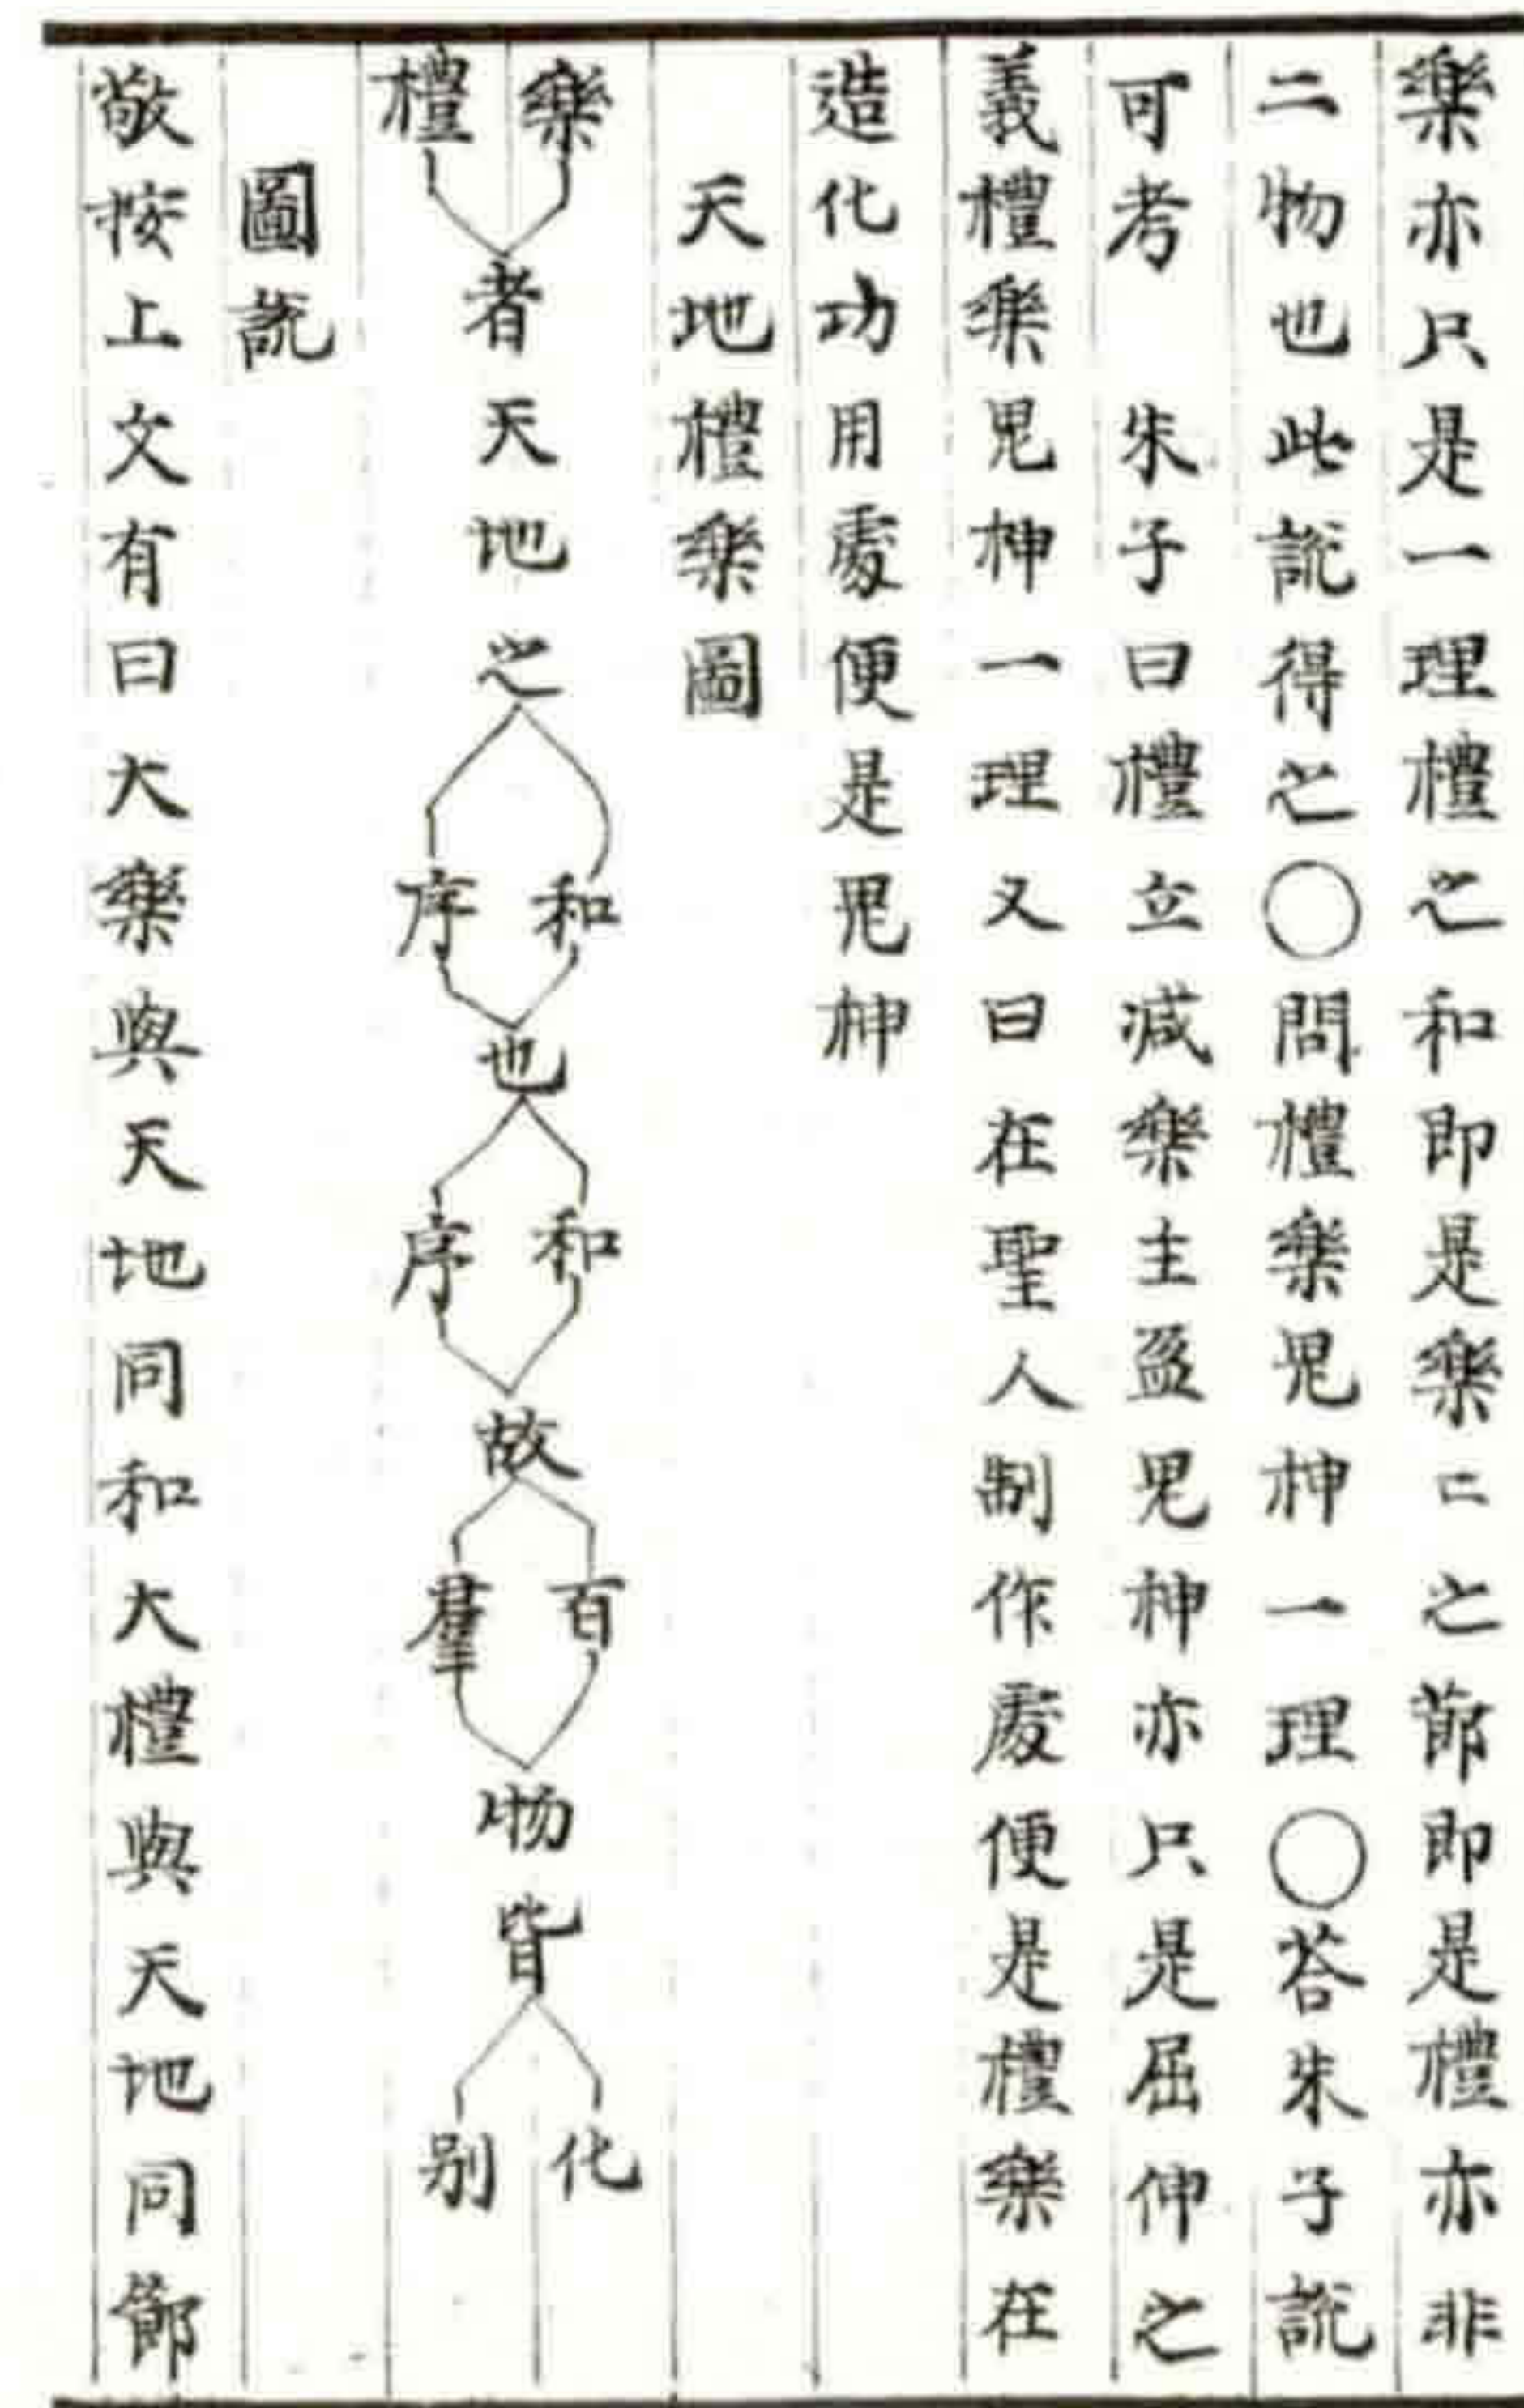 樂亦只是一理禮之和即是樂二之節即是禮亦非
二物也此說得之○問禮樂鬼神一理○荅朱子說
可考　朱子曰禮立减樂主盈鬼神亦只是屈伸之
義禮樂鬼神一理又曰在聖人制作處便是禮樂在
造化功用處便是鬼神
天地禮樂圖
樂 禮 者天地之 和 序 也 和 序 故 百 羣 物皆 化 别
圖說
敬按上文有曰大樂與天地同和大禮與天地同節